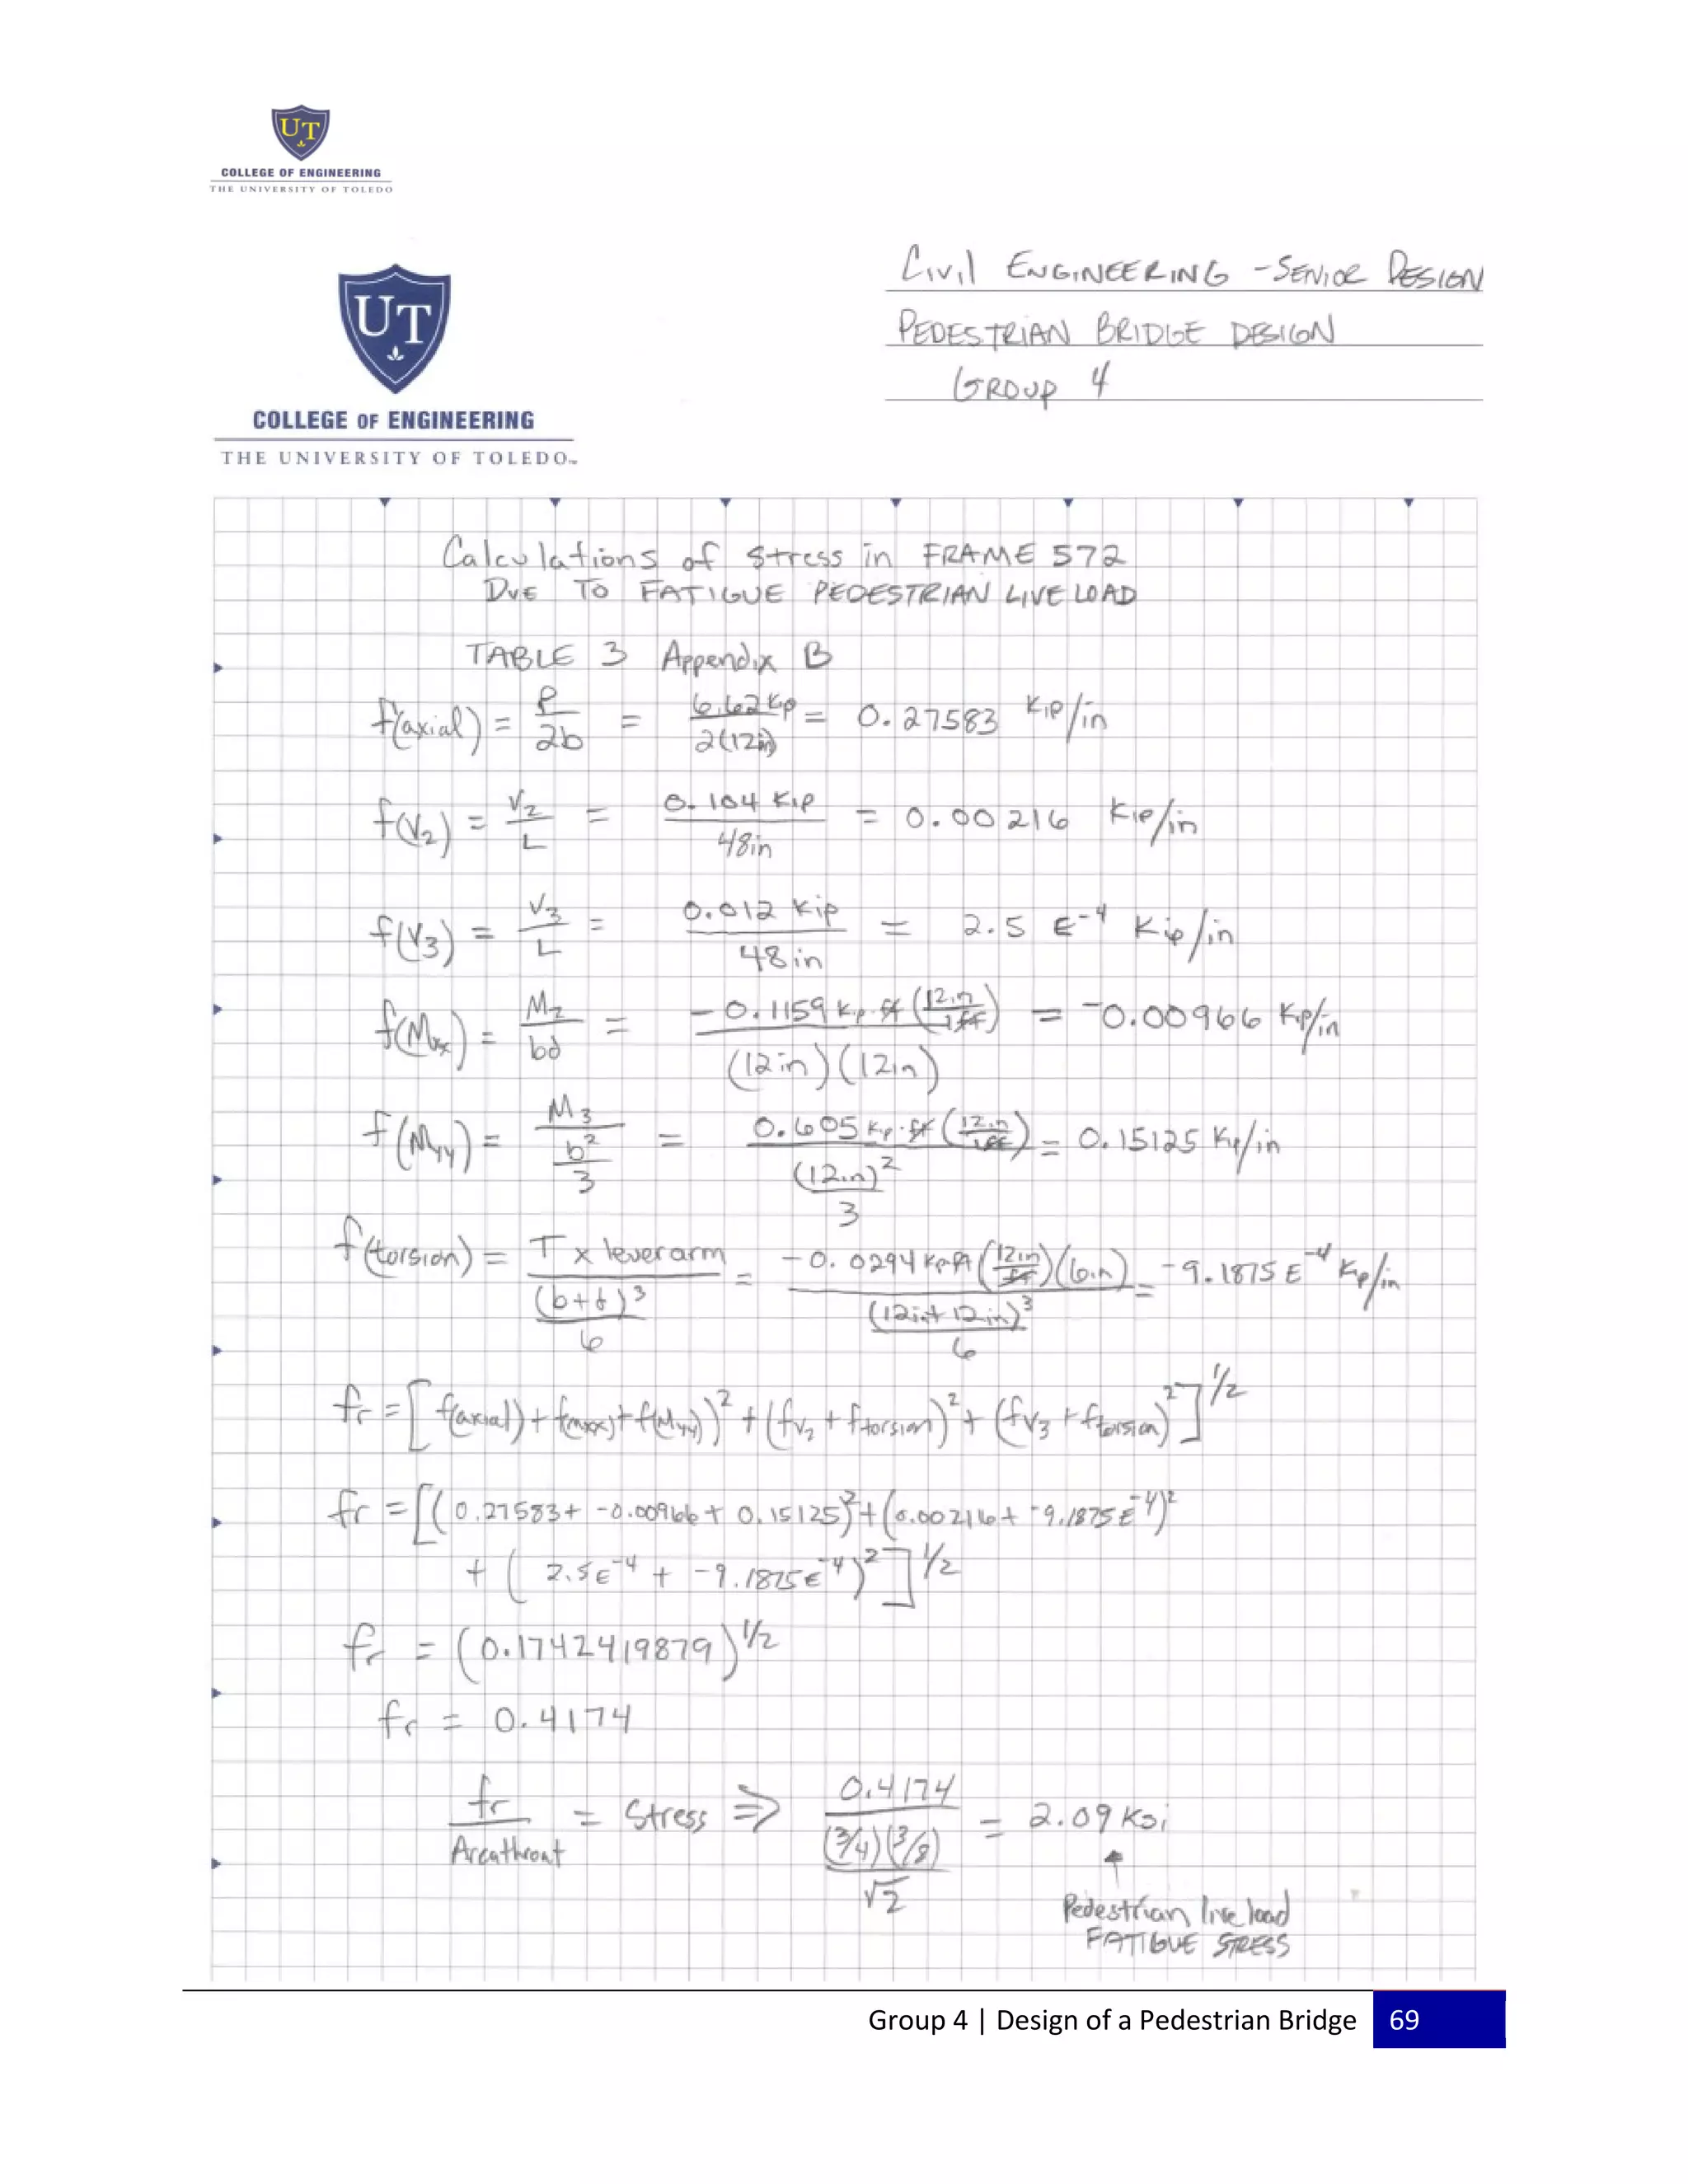 UT
COLLEGE OF ENGINEERING
THE UNIVERSITY OF TOLEDO
UT
COLLEGE OF ENGINEERING
THE UNIVERSITY OF TOLEDO™
Civil ENGINEERING - SENIOR DESIGN
PEDESTRIAN BRIDGE DESIGN
GROUP 4
Calculations of stress in FRAME 572
DUE TO FATIGUE PEDESTRIAN LIVE LOAD
TABLE 3 Appendix B
f(axial) = P/2b = 6.62 kip/2(12in) = 0.27583 kip/in
f(V2) = V2/L = 0.104 kip/48in = 0.00216 kip/in
f(V3) = V3/L = 0.012 kip/48in = 2.5 E-4 kip/in
f(Mxx) = M2/bd = -0.1159 kip·ft (12in/1ft)/(12in)(12in) = -0.00966 kip/in
f(Myy) = M3/(b²/3) = 0.605 kip·ft (12in/1ft)/((12in)²/3) = 0.15125 kip/in
f(torsion) = T x lever arm/((b+d)³/6) = -0.0294 kip·ft (12in/ft)(6in)/((12in+12in)³/6) = -9.1875 E-4 kip/in
fr = [f(axial) + f(mxx) + f(Myy))² + (fv2 + ftorsion)² + (fv3 + ftorsion)²]1/2
fr = [(0.27583 + -0.00966 + 0.15125)² + (0.00216 + -9.1875E-4)²
+ (2.5E-4 + -9.1875E-4)²]1/2
fr = (0.1742419879)1/2
fr = 0.4174
fr/Areathroat = Stress ⇒ 0.4174/((3/4)(3/8)/√2) = 2.09 Ksi
Pedestrian live load
FATIGUE STRESS
Group 4 | Design of a Pedestrian Bridge 69